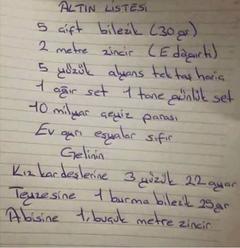 ALTIN LİSTESİ
5 çift bilezik (30 gr)
2 metre zincir (E doğartı)
5 yüzük alyans tek taş hariç
1 ağır set 1 tane günlük set
10 milyar çeyiz parası
Ev ayrı eşyalar sıfır
Gelinin
Kız kardeşlerine 3 yüzük 22 ayar
Teyzesine 1 burma bilezik 25 gr
Abisine 1, buçuk metre zincir